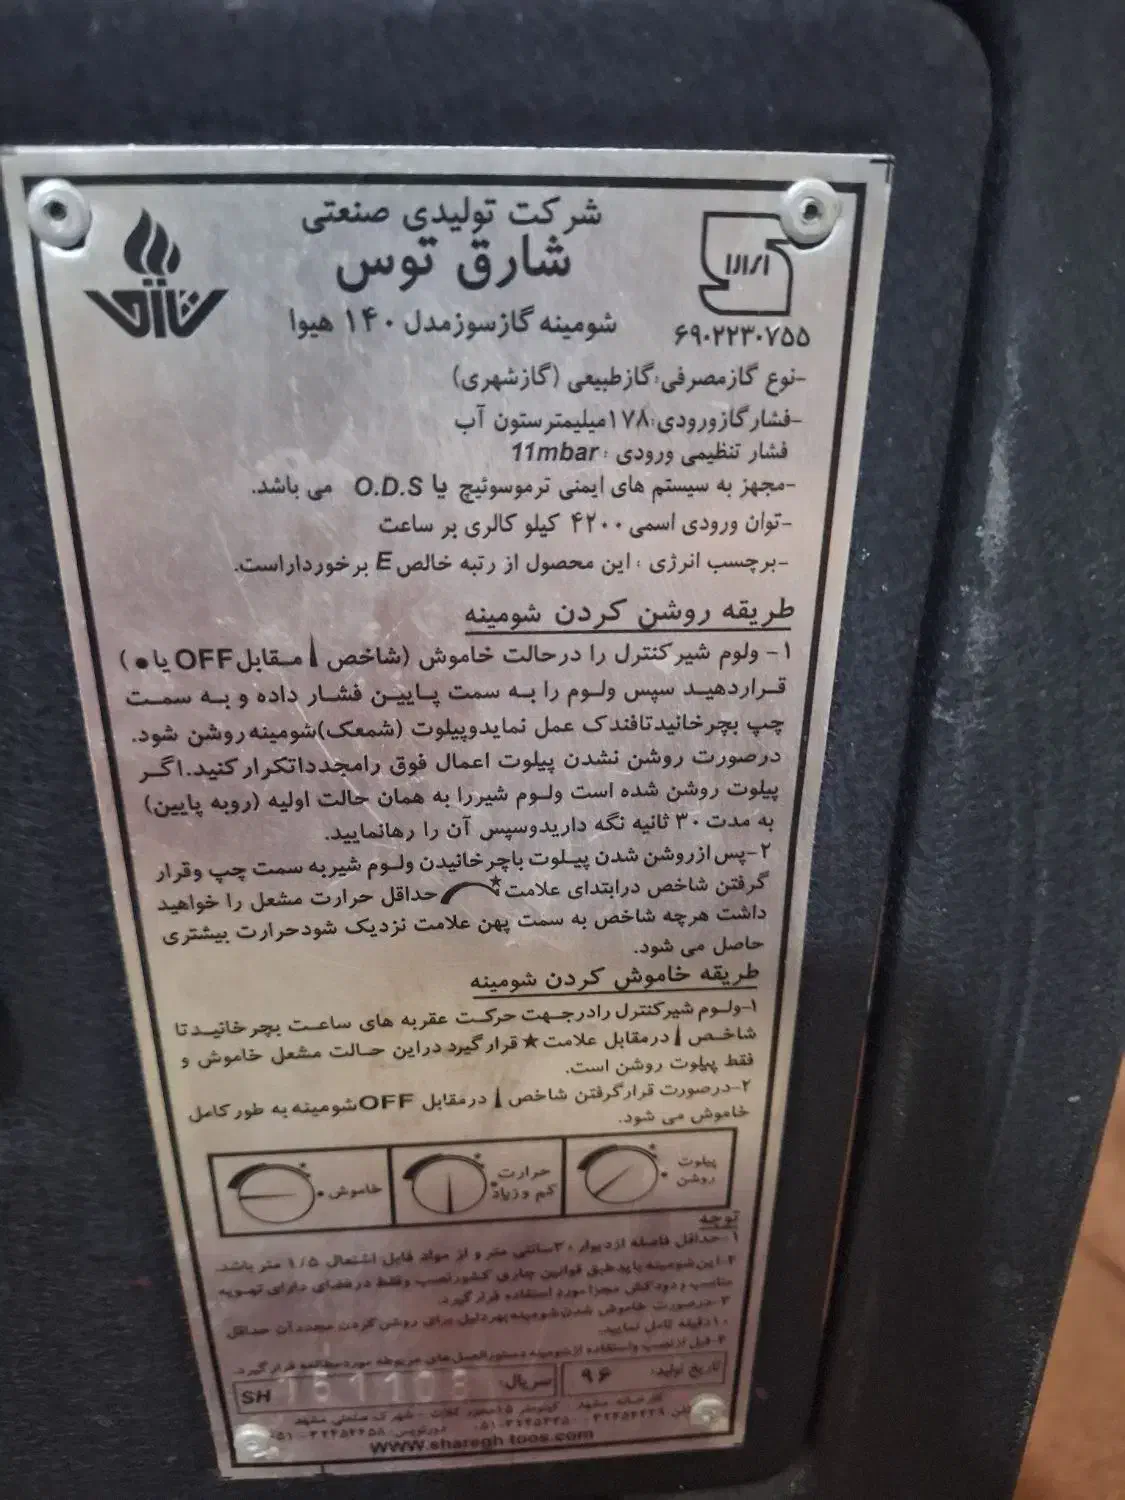 شرکت تولیدی صنعتی
شارق توس
شومینه گازسوز مدل ۱۴۰ هیوا
۶۹۰۲۲۳۰۷۵۵
-نوع گاز مصرفی: گاز طبیعی (گاز شهری)
-فشار گاز ورودی: ۱۷۸ میلیمتر ستون آب
فشار تنظیمی ورودی : 11mbar
-مجهز به سیستم های ایمنی ترموسوئیچ یا O.D.S می باشد.
-توان ورودی اسمی ۴۲۰۰ کیلو کالری بر ساعت
-برچسب انرژی : این محصول از رتبه خالص E برخوردار است.
طریقه روشن کردن شومینه
۱- ولوم شیر کنترل را در حالت خاموش (شاخص مقابل OFF یا ●)
قرار دهید سپس ولوم را به سمت پایین فشار داده و به سمت
چپ بچرخانید تا فندک عمل نماید و پیلوت (شمعک) شومینه روشن شود.
درصورت روشن نشدن پیلوت اعمال فوق را مجددا تکرار کنید. اگر
پیلوت روشن شده است ولوم شیر را به همان حالت اولیه (رو به پایین)
به مدت ۳۰ ثانیه نگه دارید و سپس آن را رها نمایید.
۲-پس از روشن شدن پیلوت با چرخانیدن ولوم شیر به سمت چپ و قرار
گرفتن شاخص در ابتدای علامت ★ حداقل حرارت مشعل را خواهید
داشت هرچه شاخص به سمت پهن علامت نزدیک شود حرارت بیشتری
حاصل می شود.
طریقه خاموش کردن شومینه
۱-ولوم شیر کنترل را در جهت حرکت عقربه های ساعت بچرخانید تا
شاخص در مقابل علامت ★ قرار گیرد در این حالت مشعل خاموش و
فقط پیلوت روشن است.
۲-درصورت قرار گرفتن شاخص در مقابل OFF شومینه به طور کامل
خاموش می شود.
پیلوت
روشن
حرارت
کم و زیاد
خاموش
توجه
۱-حداقل فاصله از دیوار ۳۰ سانتی متر و از مواد قابل اشتعال ۱/۵ متر باشد.
۲-این شومینه باید طبق قوانین جاری کشور نصب و فقط در فضای دارای تهویه
مناسب و دودکش مجزا مورد استفاده قرار گیرد.
۳-درصورت خاموش شدن شومینه بهر دلیل برای روشن کردن مجدد آن حداقل
۱۰ دقیقه تامل نمایید.
۴-قبل از نصب و استفاده از شومینه دستورالعمل های مربوطه مورد مطالعه قرار گیرد.
تاریخ تولید: ۹۶
سریال: SH
کارخانه مشهد
شهرک صنعتی مشهد
www.sharegh-toos.com